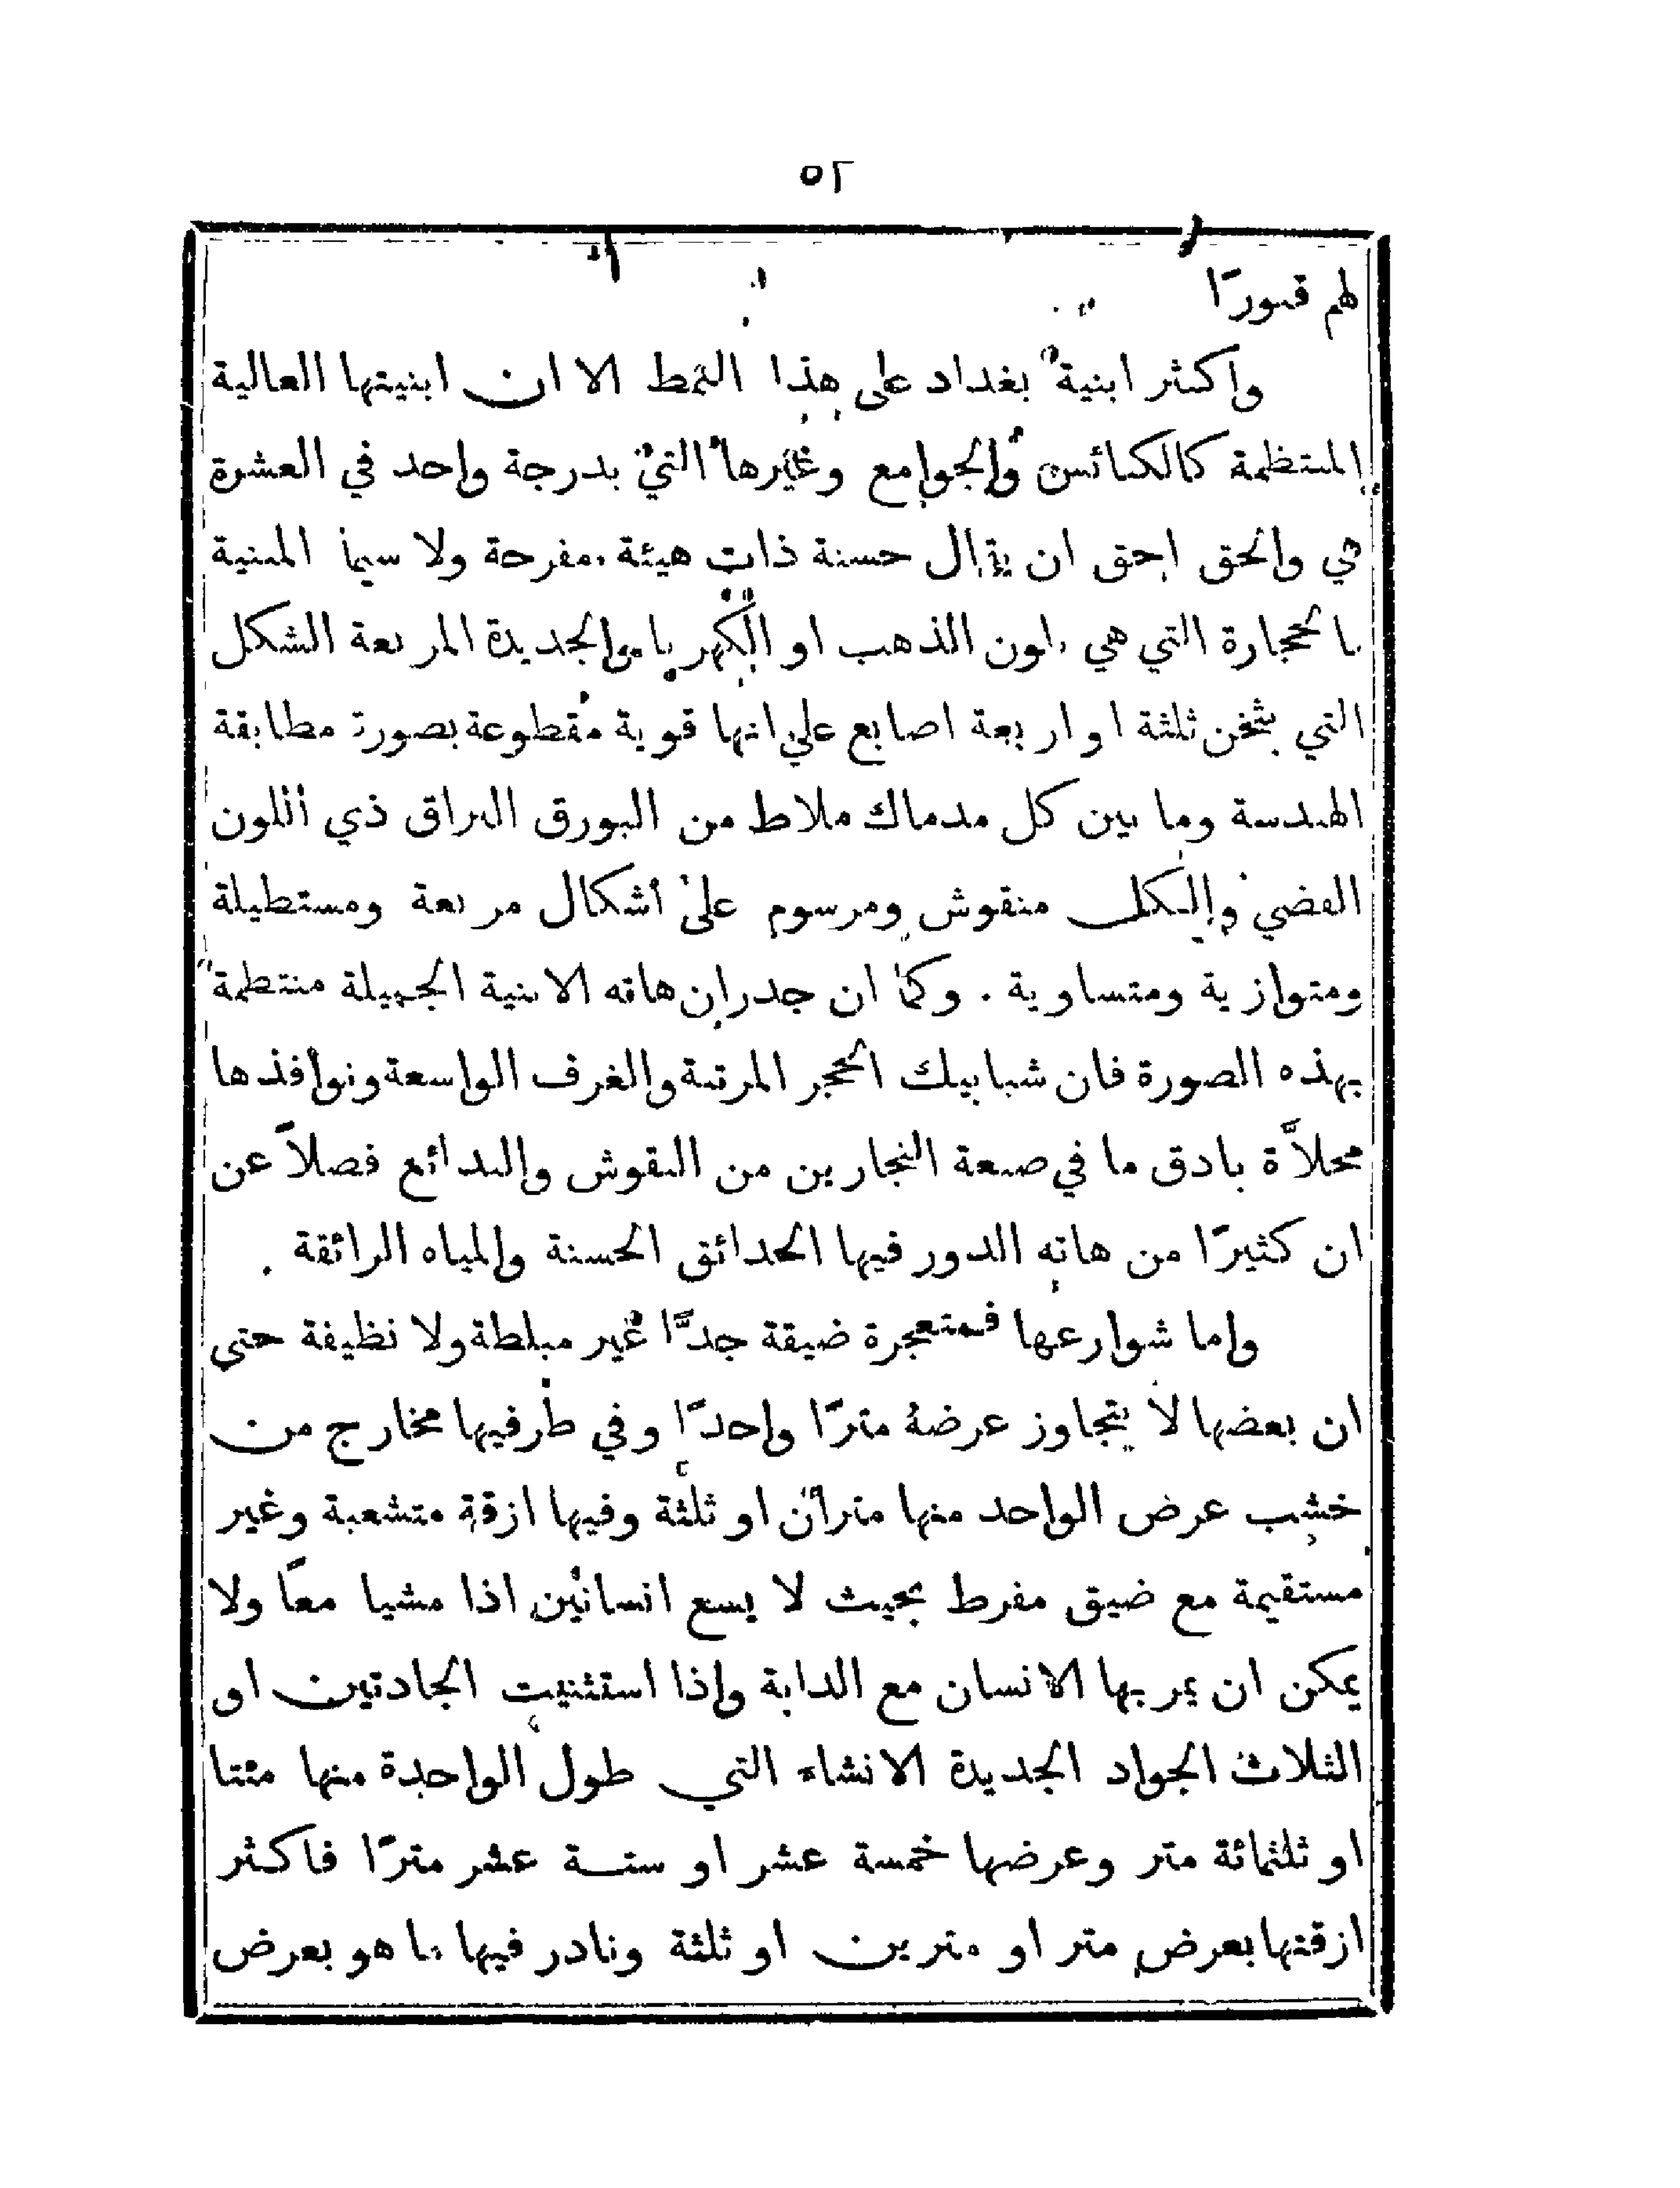 ٥٢
لهم قبورًا
واكثر ابنية بغداد على هذا النمط الا ان ابنيتها العالية
المنتظمة كالكنائس والجوامع وغيرها التي بدرجة واحد في العشرة
هي والحق احق ان يقال حسنة ذات هيئة مفرحة ولا سيما المبنية
بالحجارة التي هي بلون الذهب او الكهربا والجديدة المربعة الشكل
التي بثخن ثلثة او اربعة اصابع على انها قوية مقطوعة بصورة مطابقة
الهندسة وما بين كل مدماك ملاط من البورق البراق ذي اللون
الفضي والكل منقوش ومرسوم على أشكال مربعة ومستطيلة
ومتوازية ومتساوية . وكما ان جدران هاته الابنية الجميلة منتظمة
بهذه الصورة فان شبابيك الحجر المرتبة والغرف الواسعة ونوافذها
محلاَّة بادق ما في صنعة النجارين من النقوش والبدائع فضلاً عن
ان كثيرًا من هاته الدور فيها الحدائق الحسنة والمياه الرائقة .
واما شوارعها فمتعجرة ضيقة جدًّا غير مبلطة ولا نظيفة حتى
ان بعضها لا يتجاوز عرضهُ مترًا واحدًا وفي طرفيها مخارج من
خشب عرض الواحد منها متران او ثلثة وفيها ازقة متشعبة وغير
مستقيمة مع ضيق مفرط بحيث لا يسع انسانين اذا مشيا معًا ولا
يمكن ان يمر بها الانسان مع الدابة واذا استثنيت الجادتين او
الثلاث الجواد الجديدة الانشاء التي طول الواحدة منها مئتا
او ثلثمائة متر وعرضها خمسة عشر او ستة عشر مترًا فاكثر
ازقتها بعرض متر او مترين او ثلثة ونادر فيها ما هو بعرض